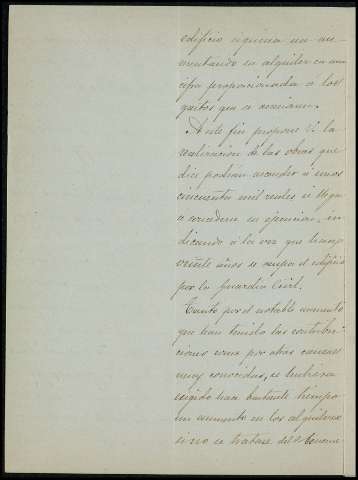 edificio
mentando su alquiler en una
cifra proporcionada á los
gastos que se
A este fin propone V. la
realizacion de las obras que
dice podrian ascender á unos
cincuenta mil reales si llega
a acceder su ejecucion, in
dicando á la vez que hace
veinte años se ocupa el edificio
por la Guardia Civil.
Tanto por el notable aumento
que han tenido las contribu
ciones como por otras causas
muy conocidas, se hubiera
exigido hace bastante tiempo
un aumento en los alquileres
si no se tratase del